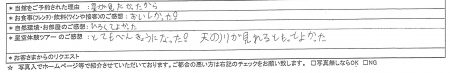 ＊当館をご予約された理由: 星が見たかったから
＊お食事(フレンチ)・飲料(ワインや接客)のご感想: おいしかった♀
＊自然環境・お部屋のご感想: ひろくてよかった
＊星空体験ツアーのご感想: とてもべんきょうになった♀ 天の川が見れるともてよかった
＊お客さまからのリクエスト
☆ 写真入でホームページ等で紹介させていただいております。ご都合の悪い方は右記のチェックをお願い致します。 □写真無しならOK □NG